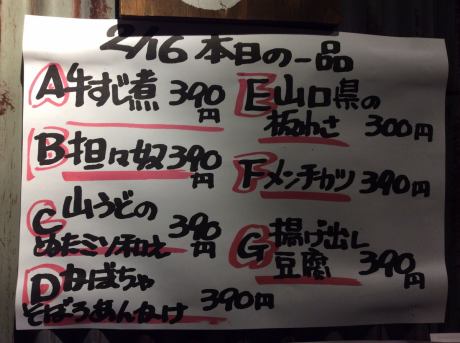 2/16 本日の一品
A 牛すじ煮 390円
B 担々奴 390円
C 山うどの
ぬたミソ和え 390円
D かぼちゃ
そぼろあんかけ 390円
E 山口県の
板わさ 300円
F メンチカツ 390円
G 揚げ出し
豆腐 390円